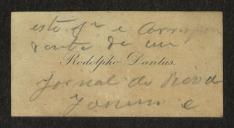 este qr e Corres
dente de um
Rodolpho Dantas.
Jornal do Rio de
Janeiro e